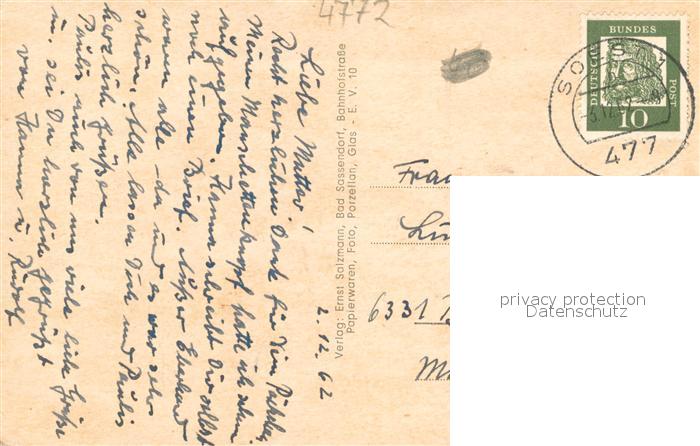 4772
2.12.62
Liebe Mutter!
Recht herzlichen Dank für Dein Päckchen.
Meinen Manschettenknopf hatte ich schon
aufgegeben. Hanna schreibt Dir selbst
noch einen Brief. Außer Ekkehard
waren alle da und es war sehr
schön. Alle lassen Dich und Paulis
herzlich grüßen.
Paulis auch von uns viele liebe Grüße
u. sei Du herzlich gegrüßt
von Hanna u. Rudolf
Verlag: Ernst Salzmann, Bad Sassendorf, Bahnhofstraße
Papierwaren, Foto, Porzellan, Glas - E. V. 10
DEUTSCHE
BUNDES
POST
10
SOEST
477
Frau
6331
privacy protection
Datenschutz